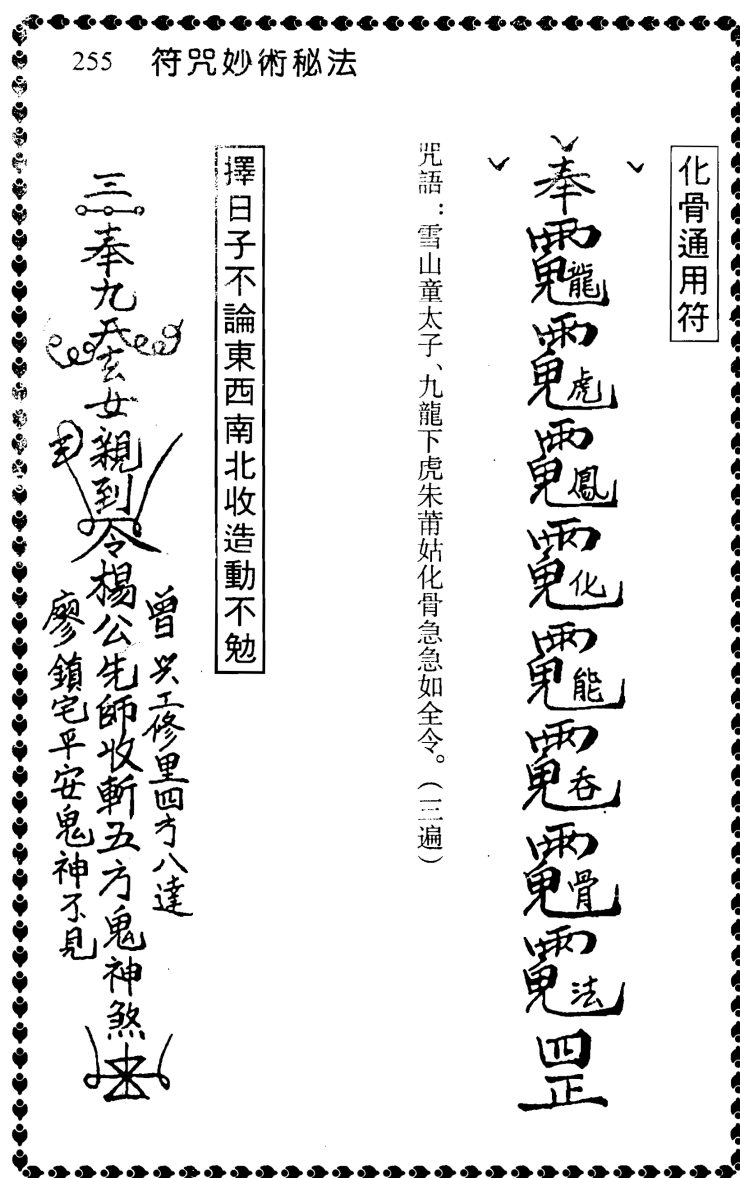 255 符咒妙術秘法
化骨通用符
奉 龍 虎 鳳 化 能 吞 骨 法 罡
咒語：雪山童太子、九龍下虎朱莆姑化骨急急如全令。（三遍）
擇日子不論東西南北收造動不勉
曾 工修里四方八達
三奉九天玄女親到令楊公先師收斬五方鬼神煞
廖 鎮宅平安鬼神不見